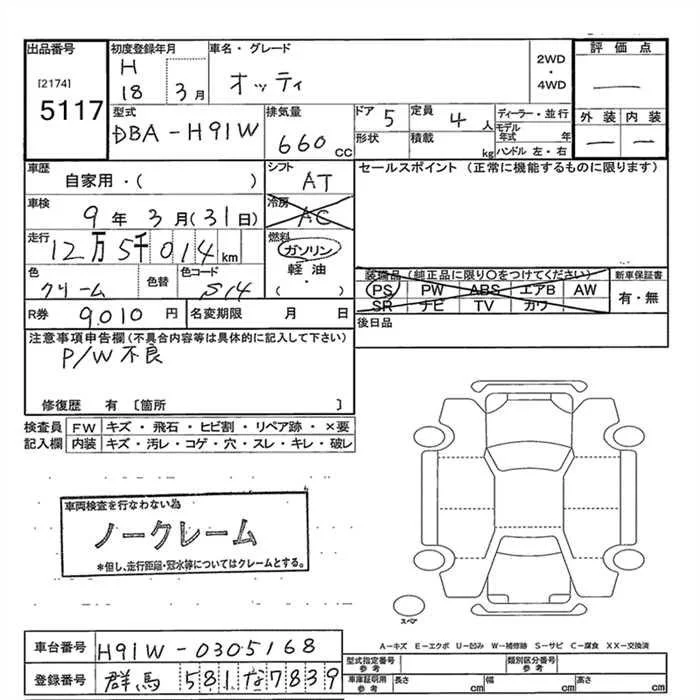 出品番号 初度登録年月 車名・グレード 2WD・4WD 評価点
[2174] H オッティ —
5117 18 3月 外装 内装
型式 排気量 ドア 5 定員 4人 ディーラー・並行 — —
DBA-H91W 660cc 形状 積載 kg モデル年式 年
ハンドル 左・右
車歴 シフト セールスポイント (正常に機能するものに限ります)
自家用・( ) AT
車検 冷房
9年 3月(31日) AC
走行 燃料
12万5千014km ガソリン
色 色替 色コード 軽油 装備品(純正品に限り○をつけてください) 新車保証書
クリーム S14 ・( ) PS PW ABS エアB AW 有・無
SR ナビ TV カワ
R券 9010円 名変期限 月 日 後日品
注意事項申告欄(不具合内容等は具体的に記入して下さい)
P/W不良
修復歴 有 〔箇所 〕
検査員 FW キズ・飛石・ヒビ割・リペア跡・×要
記入欄 内装 キズ・汚レ・コゲ・穴・スレ・キレ・破レ
車両検査を行なわない為
ノークレーム
*但し、走行距離・冠水等についてはクレームとする。
スペア
A-キズ E-エクボ U-凹み W-補修跡 S-サビ C-腐食 XX-交換済
車台番号 H91W-0305168 型式指定番号 参考 類別区分番号 参考
登録番号 群馬 581 な7839 車庫証明用 参考 長さ cm 幅 cm 高さ cm